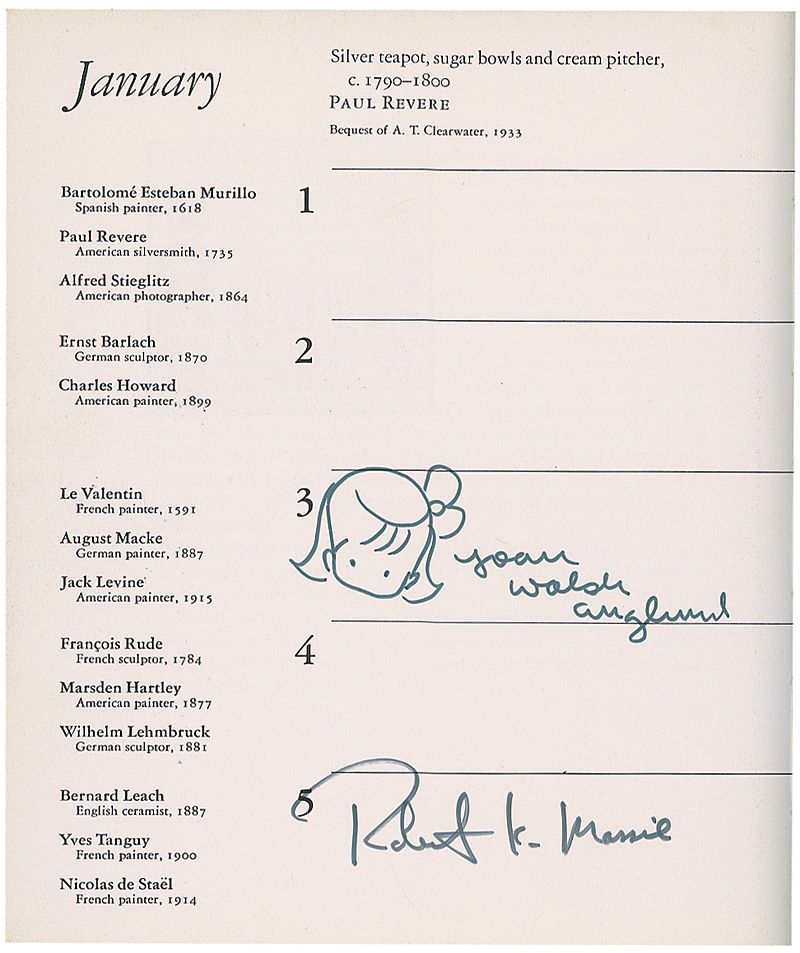 January
Silver teapot, sugar bowls and cream pitcher,
c. 1790–1800
PAUL REVERE
Bequest of A. T. Clearwater, 1933
Bartolomé Esteban Murillo
Spanish painter, 1618
1
Paul Revere
American silversmith, 1735
Alfred Stieglitz
American photographer, 1864
Ernst Barlach
German sculptor, 1870
2
Charles Howard
American painter, 1899
Le Valentin
French painter, 1591
3
August Macke
German painter, 1887
Jack Levine
American painter, 1915
joan
walsh
anglund
François Rude
French sculptor, 1784
4
Marsden Hartley
American painter, 1877
Wilhelm Lehmbruck
German sculptor, 1881
Bernard Leach
English ceramist, 1887
5
Robert K. Massie
Yves Tanguy
French painter, 1900
Nicolas de Staël
French painter, 1914